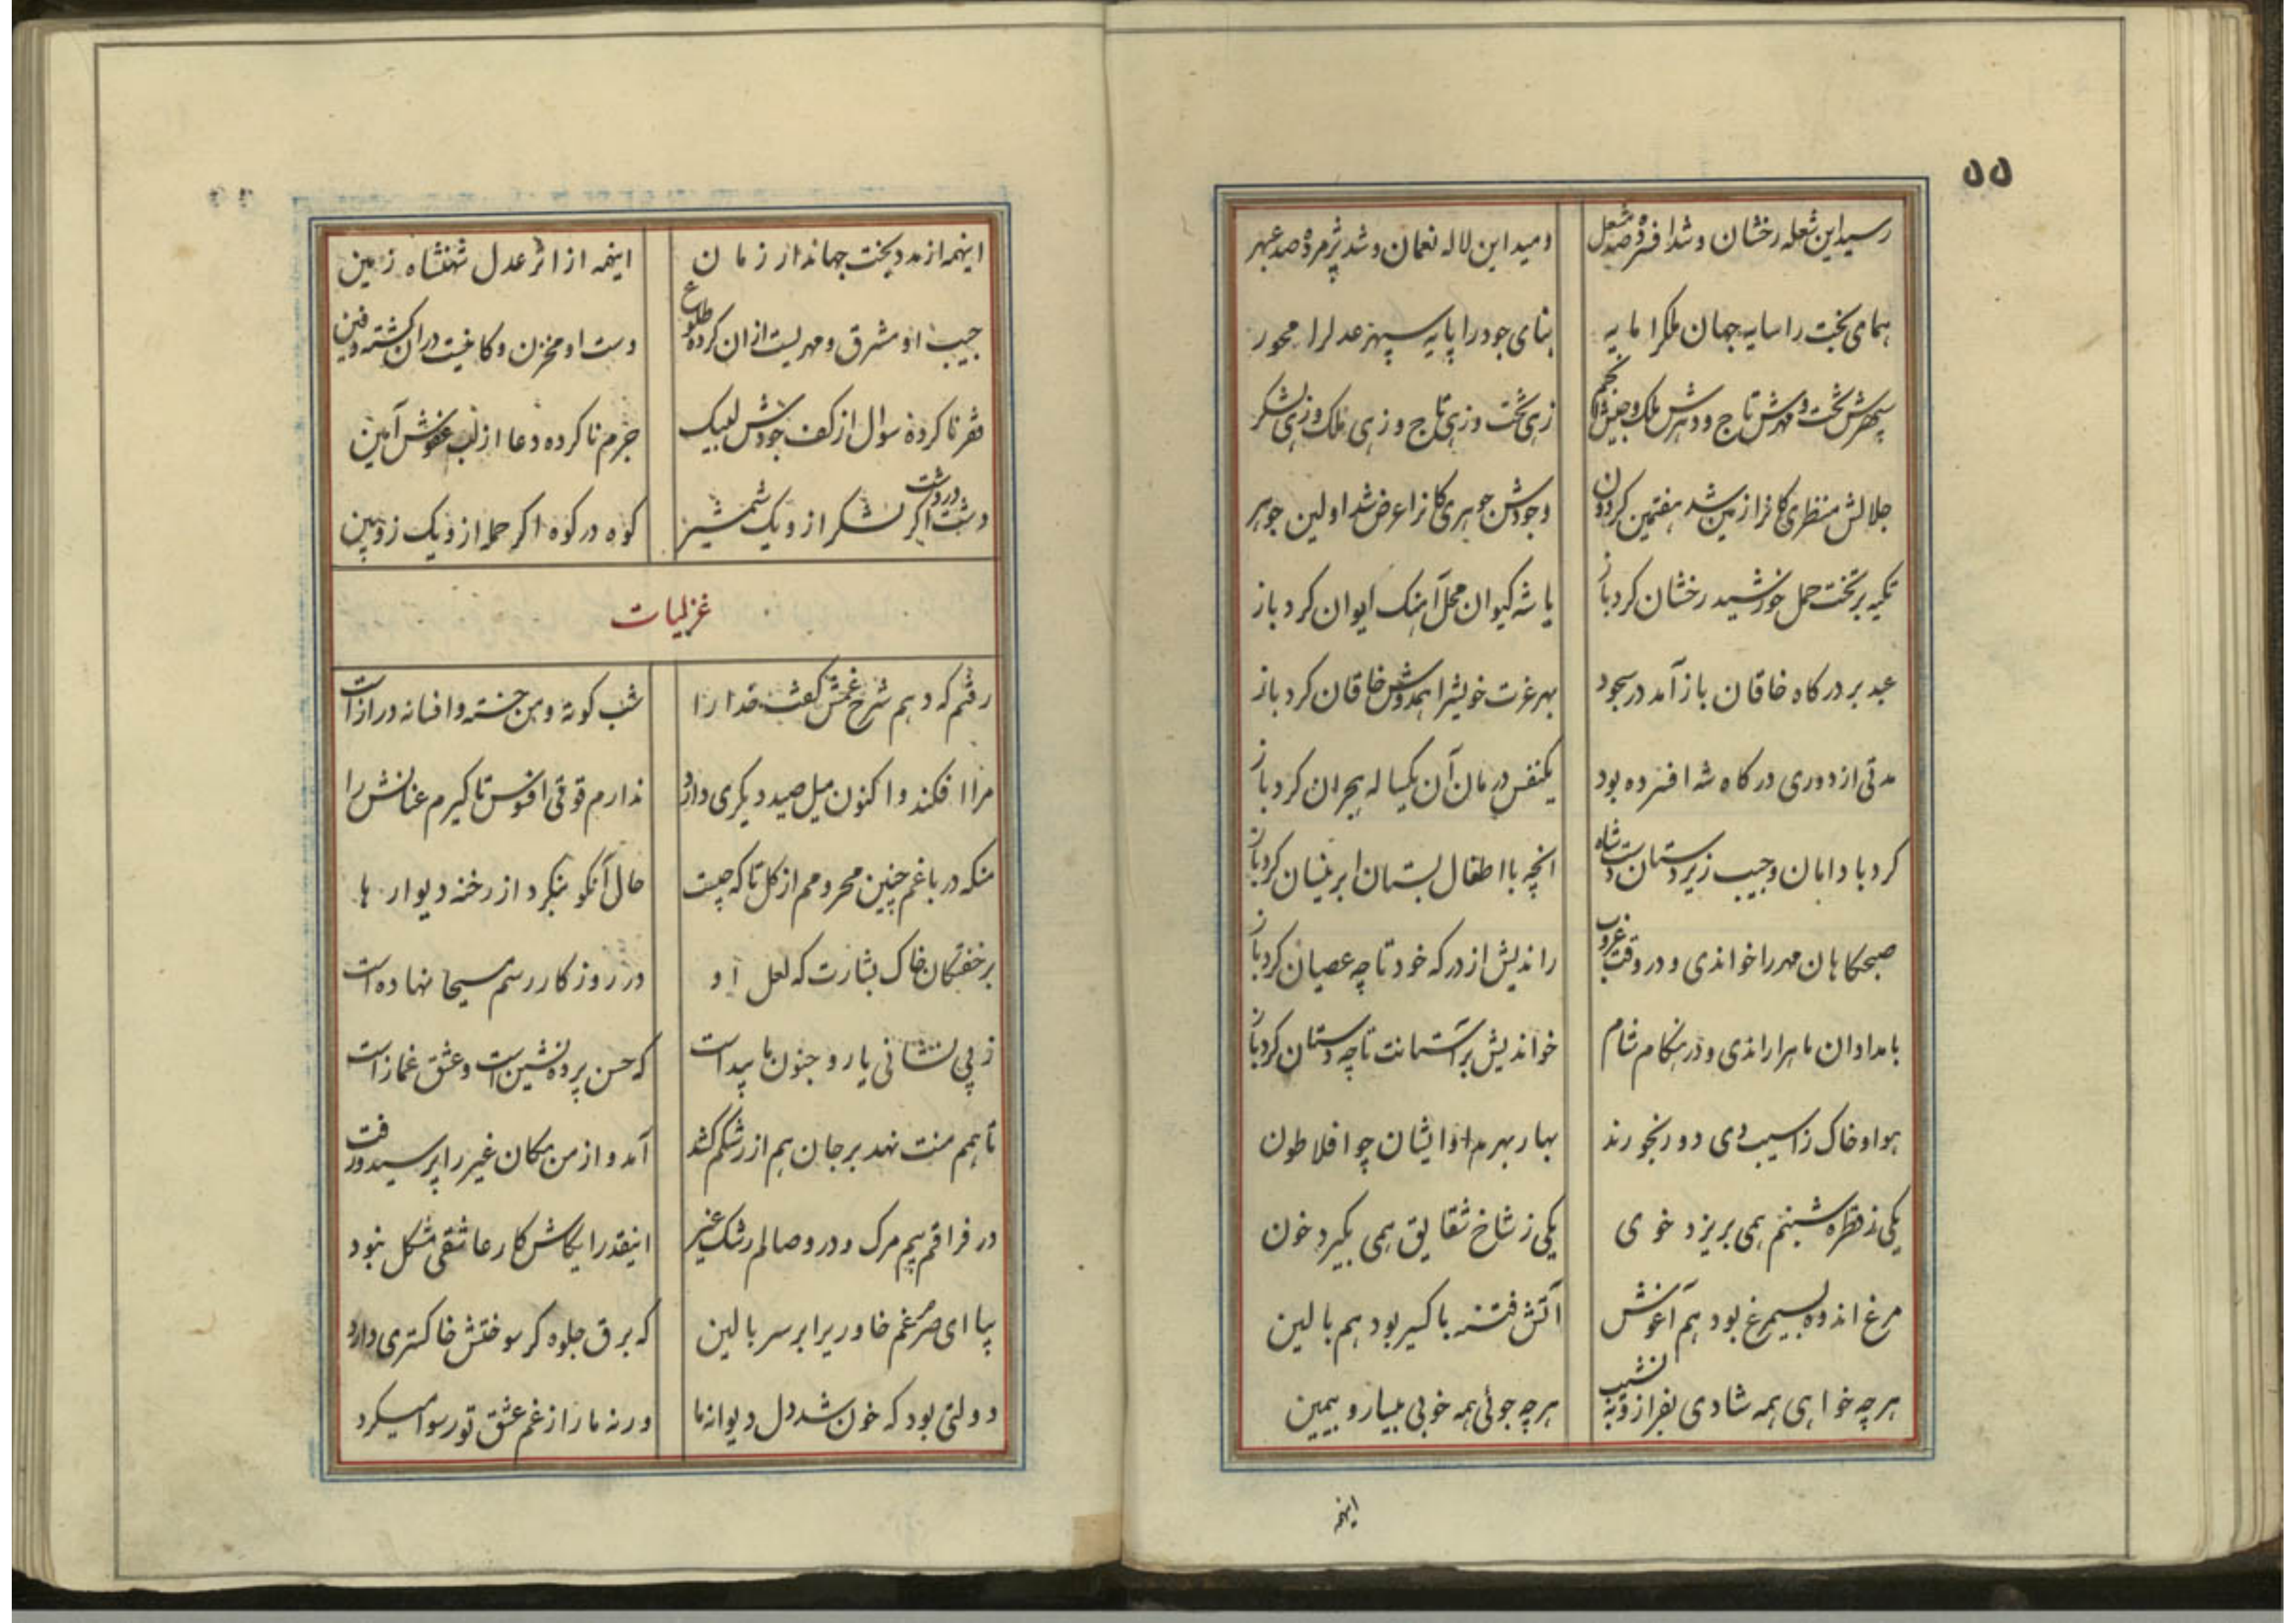 ۵۵
رسید این شعله رخشان و شد افسرده صد مشعل
دمید این لاله نعمان و شد پژمرده صد عبهر
همای بخت را سایه جهان ملکرا مایه
بنای جود را پایه سپهر عدلرا محور
سپهرش تخت و مهرش تاج و دهرش ملک و جیش انجم
زهی تخت و زهی تاج و زهی ملک و زهی لشکر
جلالش منظری کانرا زمین شد هفتمین کردون
وجودش جوهری کانرا عرض شد اولین جوهر
تکیه بر تخت حمل خورشید رخشان کرد باز
یا شه کیوان محل آهنک ایوان کرد باز
عید بر درکاه خاقان باز آمد در سجود
بهر عزت خویشرا همدوش خاقان کرد باز
مدتی از دوری درکاه شه افسرده بود
یکنفس درمان آن یکساله هجران کرد باز
کرد با دامان و جیب زیردستان دست شاه
انچه با اطفال بستان ابر نیسان کرد باز
صبحکاهان مهر را خواندی و در وقت غروب
راندیش از درکه خود تا چه عصیان کرد باز
بامدادان ماهرا راندی و در هنکام شام
خواندیش بر آستانت تا چه دستان کرد باز
هوا و خاک ز آسیب دی دو رنجورند
بهار بهر مداوا ایشان چو افلاطون
یکی ز قطره شبنم همی بریزد خوی
یکی ز شاخ شقایق همی بکیرد خون
مرغ اندوه بسیمرغ بود هم آغوش
آتش فتنه باکسیر بود هم بالین
هر چه خواهی همه شادی بفراز و به نشیب
هر چه جوئی همه خوبی بیسار و بیمین
اینهمه
اینهمه از مدد بخت جهاندار زمان
اینهمه از اثر عدل شهنشاه زمین
جیب او مشرق و مهریست از ان کرده طلوع
دست او مخزن و کانیست در ان کشته دفین
فقر ناکرده سوال از کف جودش لبیک
جرم ناکرده دعا از لب عفوش آمین
دشت در دشت اکر لشکر از و یک شمشیر
کوه در کوه اکر حمله از و یک زوبین
غزلیات
رفتم که دهم شرح غمش کفت قدارا
شب کوته و من خسته و افسانه درازاست
مرا افکند و اکنون میل صید دیکری دارد
ندارم قوتی افسوس تا کیرم عنانش را
منکه در باغم چنین محرومم از کل تا که چیست
حال آنکو بنکرد از رخنه دیوارها
بر خفتکان خاک بشارت که لعل او
در روزکار رسم مسیحا نهاده است
ز بی نشانی یار و جنون ما پیداست
که حسن پرده نشین است و عشق غمازاست
تا هم منت نهد بر جان هم از رشکم کشد
آمد و از من مکان غیر را پرسید و رفت
در فراقم بیم مرک و در وصالم رشک غیر
اینقدر ایکاش کار عاشقی مشکل نبود
بیا ای صرصر غم خاوریرا بر سر بالین
که برق جلوه کر سوختش خاکستری دارد
دولتی بود که خون شد دل دیوانه ما
ور نه ما را ز غم عشق تو رسوا میکرد